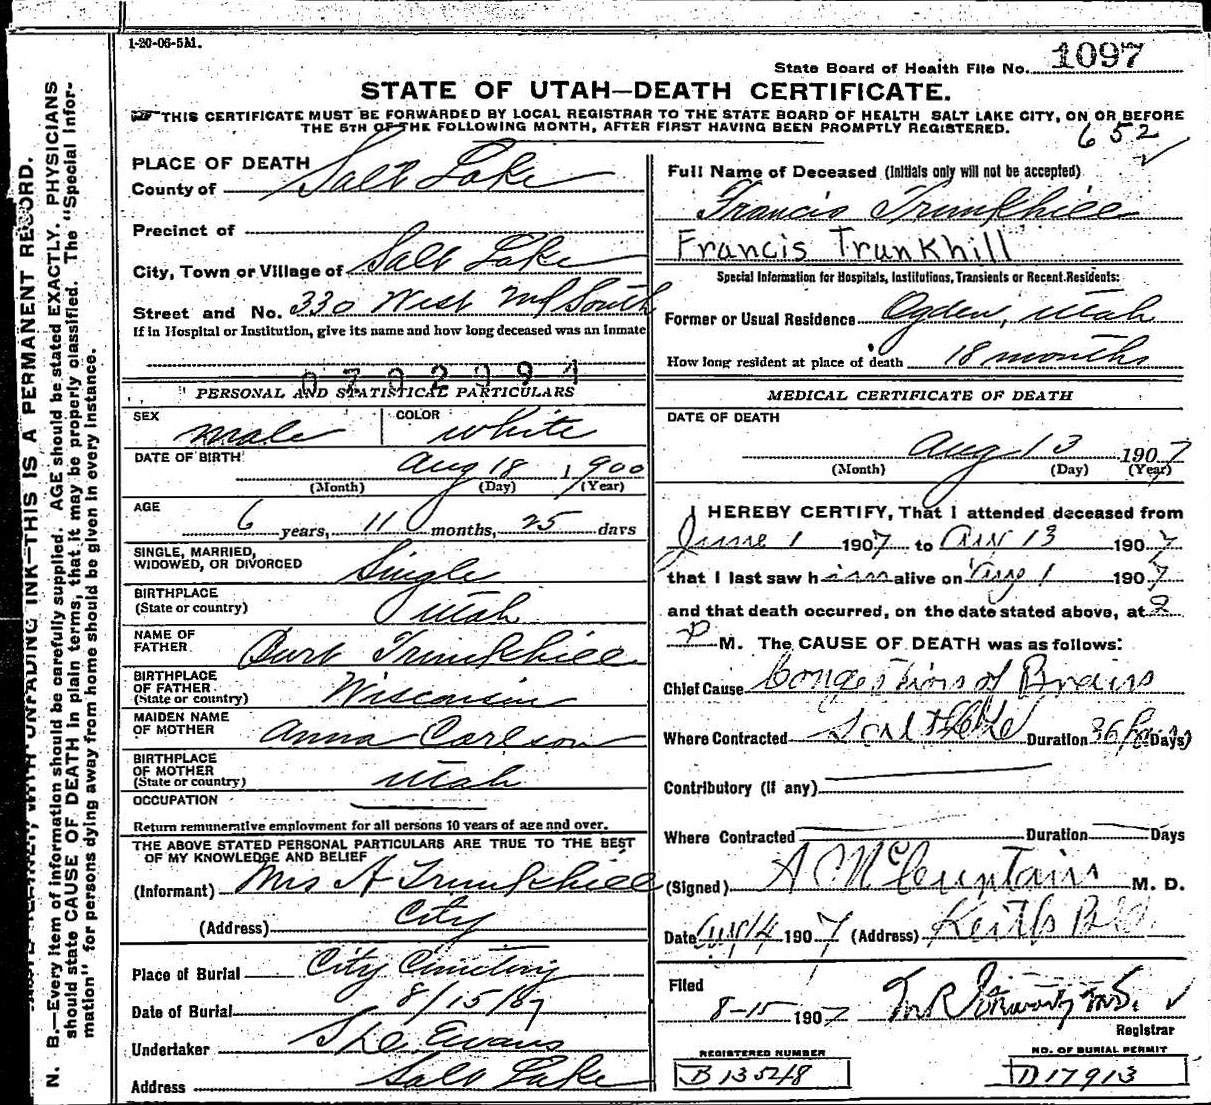 1-20-06-5M.
State Board of Health File No. 1097
STATE OF UTAH—DEATH CERTIFICATE.
THIS CERTIFICATE MUST BE FORWARDED BY LOCAL REGISTRAR TO THE STATE BOARD OF HEALTH SALT LAKE CITY, ON OR BEFORE
THE 5TH OF THE FOLLOWING MONTH, AFTER FIRST HAVING BEEN PROMPTLY REGISTERED.
652
PLACE OF DEATH
County of Salt Lake
Precinct of
City, Town or Village of Salt Lake
Street and No. 330 West South
If in Hospital or Institution, give its name and how long deceased was an Inmate
PERSONAL AND STATISTICAL PARTICULARS
SEX male COLOR white
DATE OF BIRTH Aug 18, 1900
(Month) (Day) (Year)
AGE
6 years, 11 months, 25 days
SINGLE, MARRIED,
WIDOWED, OR DIVORCED Single
BIRTHPLACE
(State or country) Utah
NAME OF
FATHER Burt Trunkhill
BIRTHPLACE
OF FATHER
(State or country) Wisconsin
MAIDEN NAME
OF MOTHER Anna Carlson
BIRTHPLACE
OF MOTHER
(State or country) Utah
OCCUPATION
Return remunerative employment for all persons 10 years of age and over.
THE ABOVE STATED PERSONAL PARTICULARS ARE TRUE TO THE BEST
OF MY KNOWLEDGE AND BELIEF
(Informant) Mrs A Trunkhill
(Address) City
Place of Burial City Cemetery
Date of Burial 8/15/07
Undertaker Evans
Address Salt Lake
Full Name of Deceased (Initials only will not be accepted)
Francis Trunkhill
Francis Trunkhill
Special Information for Hospitals, Institutions, Transients or Recent Residents:
Former or Usual Residence Ogden, Utah
How long resident at place of death 18 months
MEDICAL CERTIFICATE OF DEATH
DATE OF DEATH
Aug 13 1907
(Month) (Day) (Year)
I HEREBY CERTIFY, That I attended deceased from
June 1 1907 to Aug 13 1907
that I last saw him alive on Aug 1 1907
and that death occurred, on the date stated above, at 2
P M. The CAUSE OF DEATH was as follows:
Chief Cause Congestion of Brain
Where Contracted Salt Lake Duration 36 Days
Contributory (if any)
Where Contracted Duration Days
(Signed) M. D.
Date Aug 14 1907 (Address) Keith
Filed
8-15 1907
Registrar
REGISTERED NUMBER
B 13548
NO. OF BURIAL PERMIT
D 17913
N. B.—Every item of information should be carefully supplied. AGE should be stated EXACTLY. PHYSICIANS
should state CAUSE OF DEATH in plain terms, that it may be properly classified. The "Special Infor-
mation" for persons dying away from home should be given in every instance.
WITH UNFADING INK—THIS IS A PERMANENT RECORD.